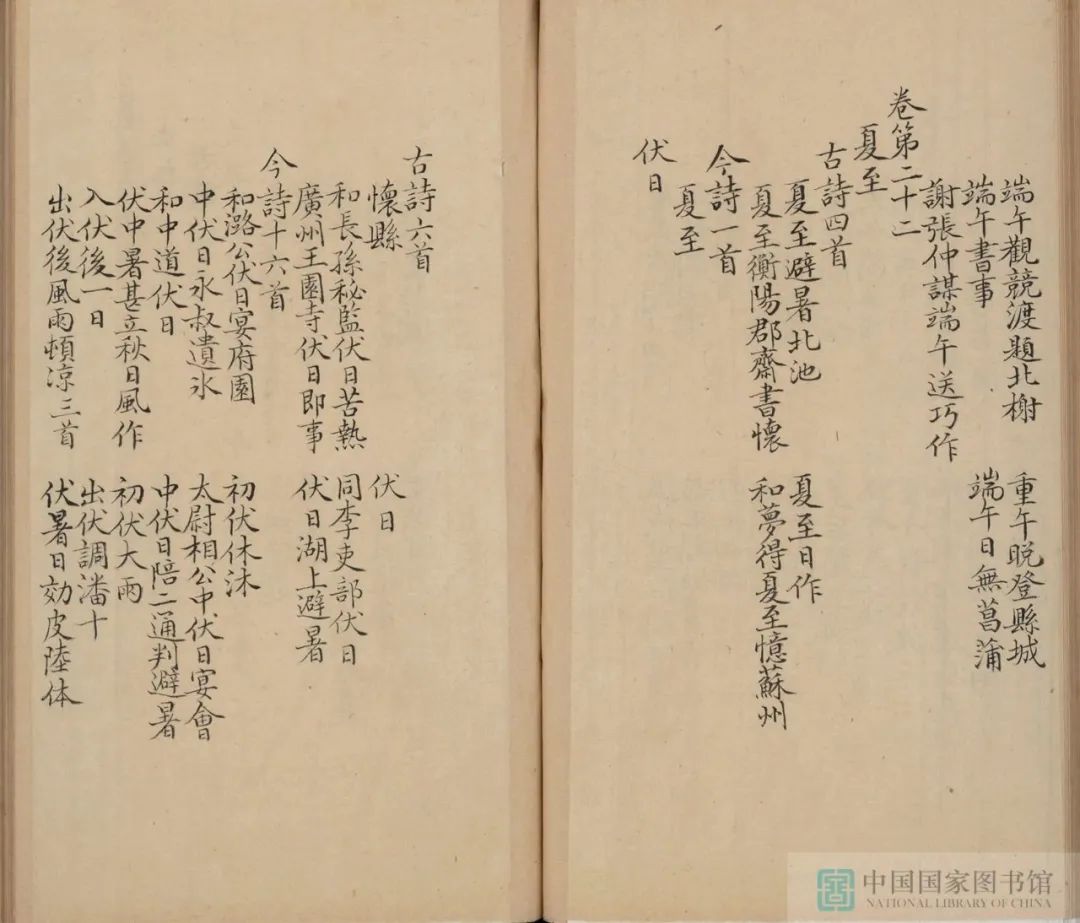 端午觀競渡題北榭　重午晚登縣城
端午書事　端午日無菖蒲
謝張仲謀端午送巧作
卷第二十二
夏至
古詩四首
夏至避暑北池　夏至日作
夏至衡陽郡齋書懷　和夢得夏至憶蘇州
今詩一首
夏至
伏日
古詩六首
懷縣　伏日
和長孫秘監伏日苦熱　同李吏部伏日
廣州王園寺伏日即事　伏日湖上避暑
今詩十六首
和潞公伏日宴府園　初伏休沐
中伏日永叔遺冰　太尉相公中伏日宴會
和中道伏日　中伏日陪二通判避暑
伏中暑甚立秋日風作　初伏大雨
入伏後一日　出伏調潘十
出伏後風雨頓凉三首　伏暑日効皮陸体
中国国家图书馆
NATIONAL LIBRARY OF CHINA